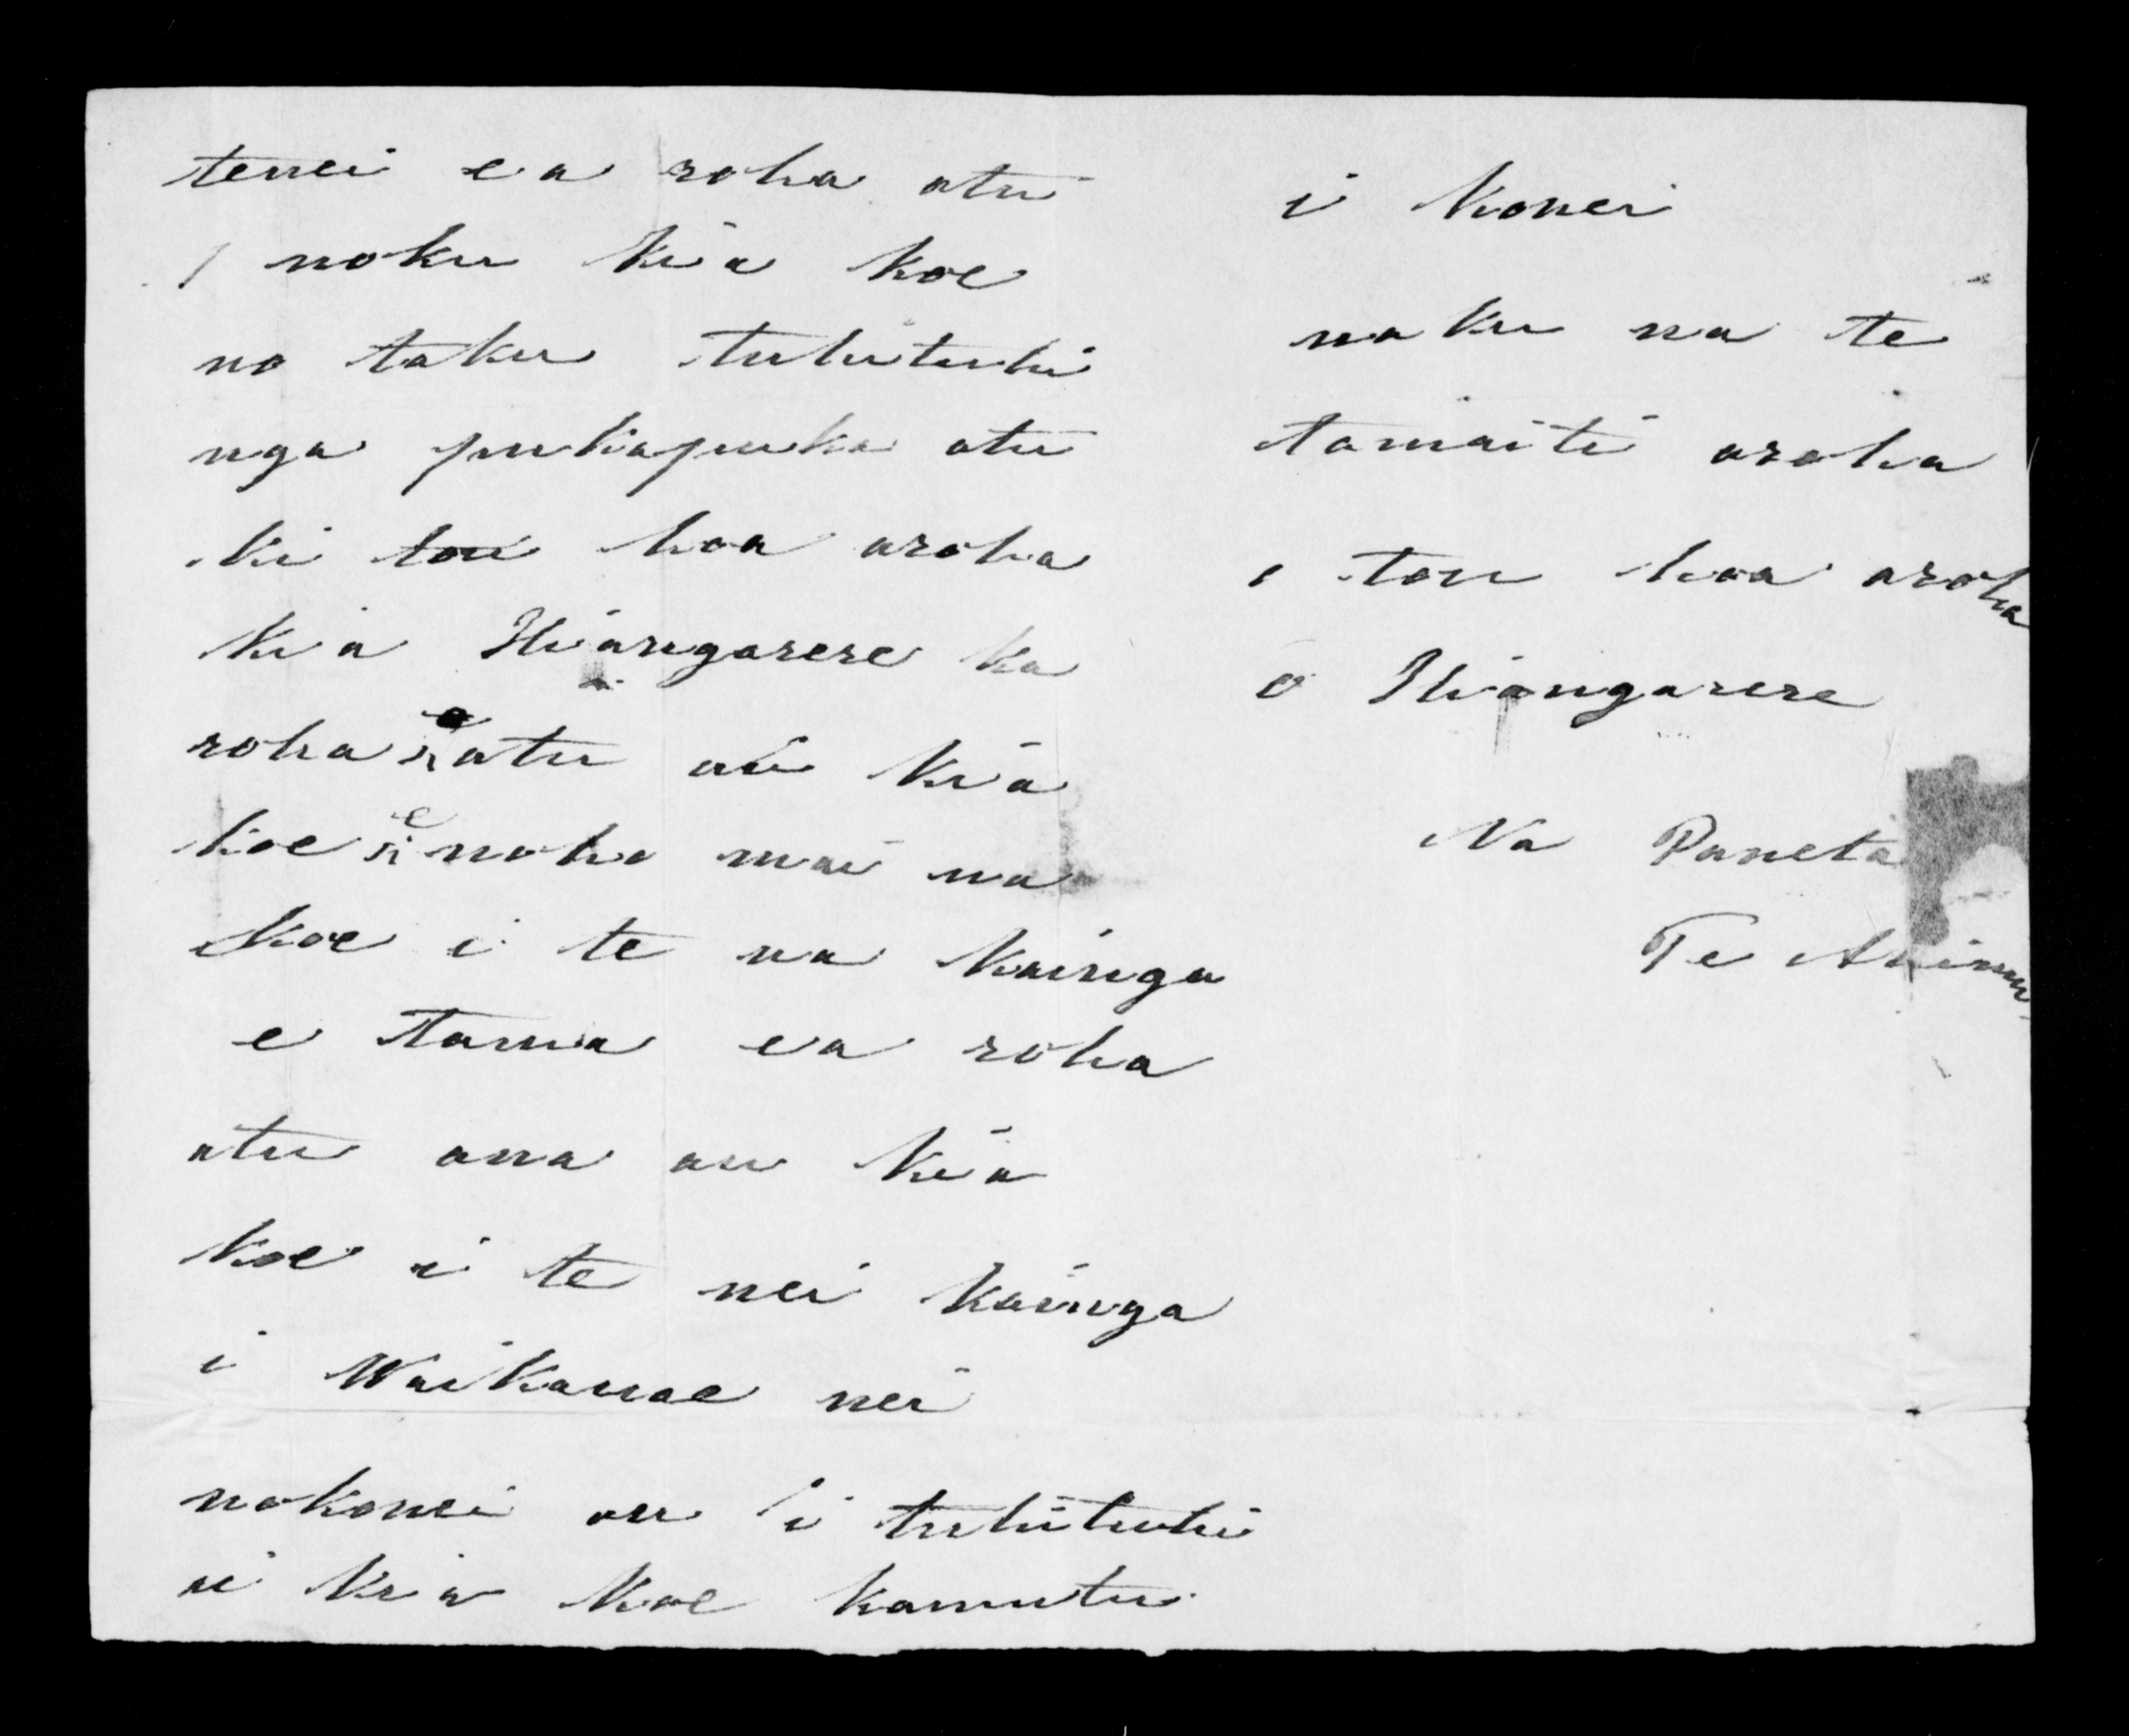 tenei e a roha atu
noku kia koe
no taku tuhituhi
nga pukapuka atu
ki tou hoa aroha
kia Hiangarere ka
roha e atu au kia
koe e noho mai na
koe i te na kainga
e Tama e a roha
atu ana au kia
koe i te nei kainga
i Waikanae nei
nokonei au i tuhituhi
ai kia koe kamutu
i konei
naku na te
tamaiti aroha
o tou hoa aroha
o Hiangarere
Na Paneta
Te